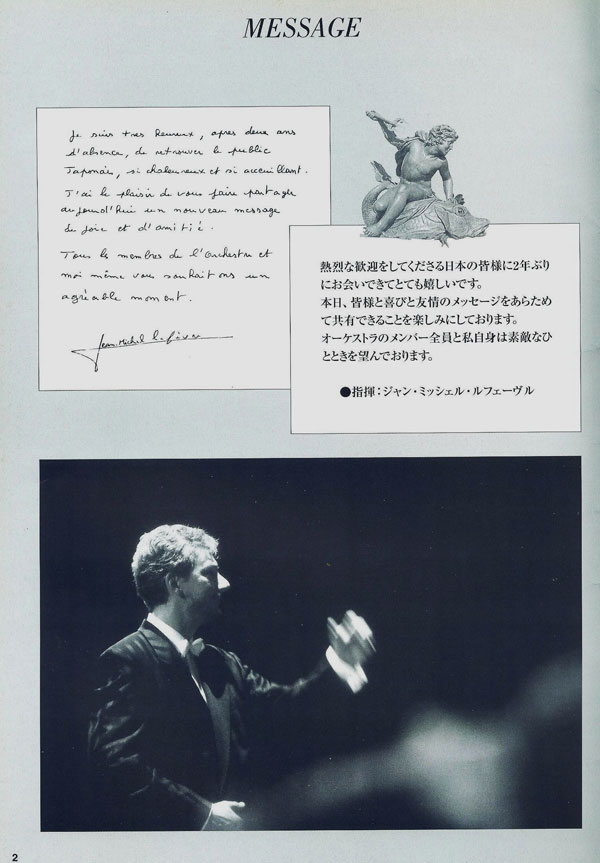 MESSAGE
Je suis très heureux, après deux ans
d'absence, de retrouver le public
Japonais, si chaleureux et si acceuillant.
J'ai le plaisir de vous faire partager
aujourd'hui un nouveau message
de joie et d'amitié.
Tous les membres de l'Orchestre et
moi même vous souhaitons un
agréable moment.
Jean-Michel Lefèvre
熱烈な歓迎をしてくださる日本の皆様に2年ぶり
にお会いできてとても嬉しいです。
本日、皆様と喜びと友情のメッセージをあらため
て共有できることを楽しみにしております。
オーケストラのメンバー全員と私自身は素敵なひ
とときを望んでおります。
●指揮：ジャン・ミッシェル・ルフェーヴル
2